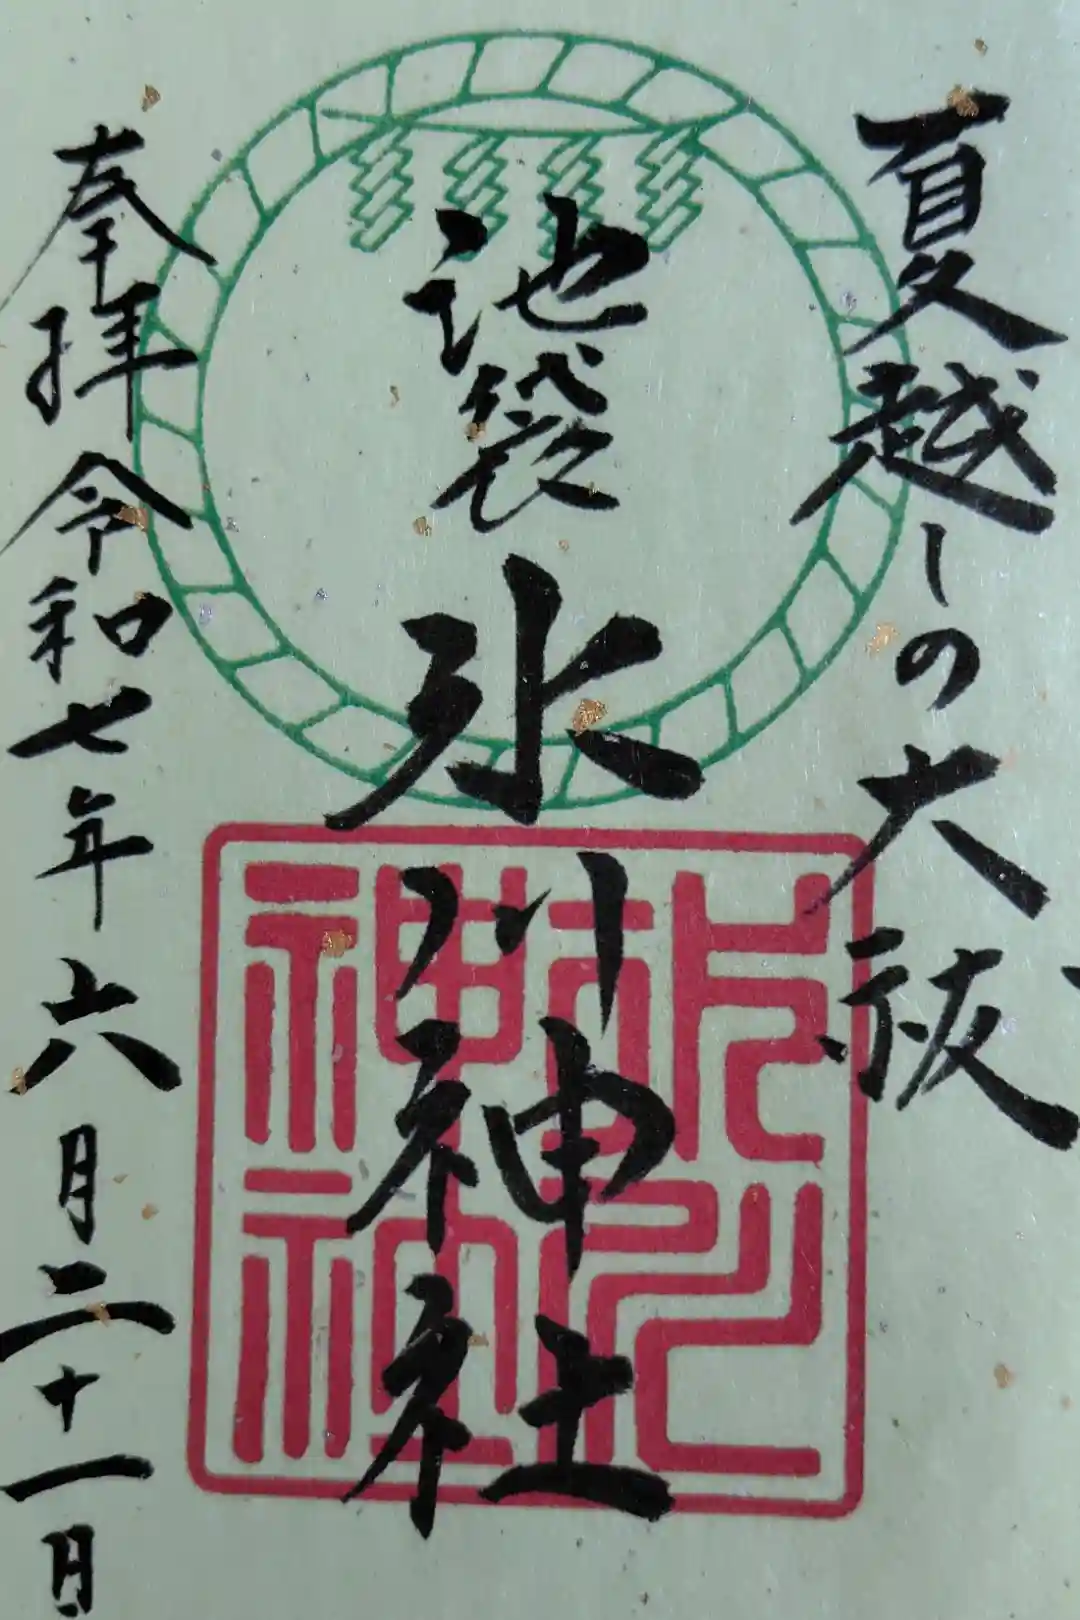 夏越しの大祓
池袋氷川神社
奉拝 令和七年六月二十一日